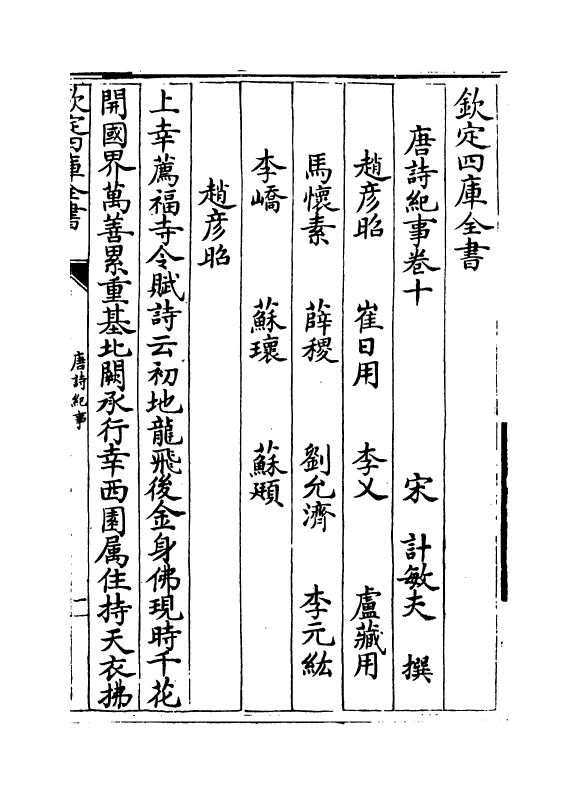 欽定四庫全書
唐詩紀事卷十
宋 計敏夫 撰
趙彦昭 崔日用 李乂 盧藏用
馬懷素 薛稷 劉允濟 李元紘
李嶠 蘇瓌 蘇頲
趙彦昭
上幸薦福寺令賦詩云初地龍飛後金身佛現時千花
開國界萬善累重基北闕承行幸西園属住持天衣拂
欽定四庫全書
唐詩紀事